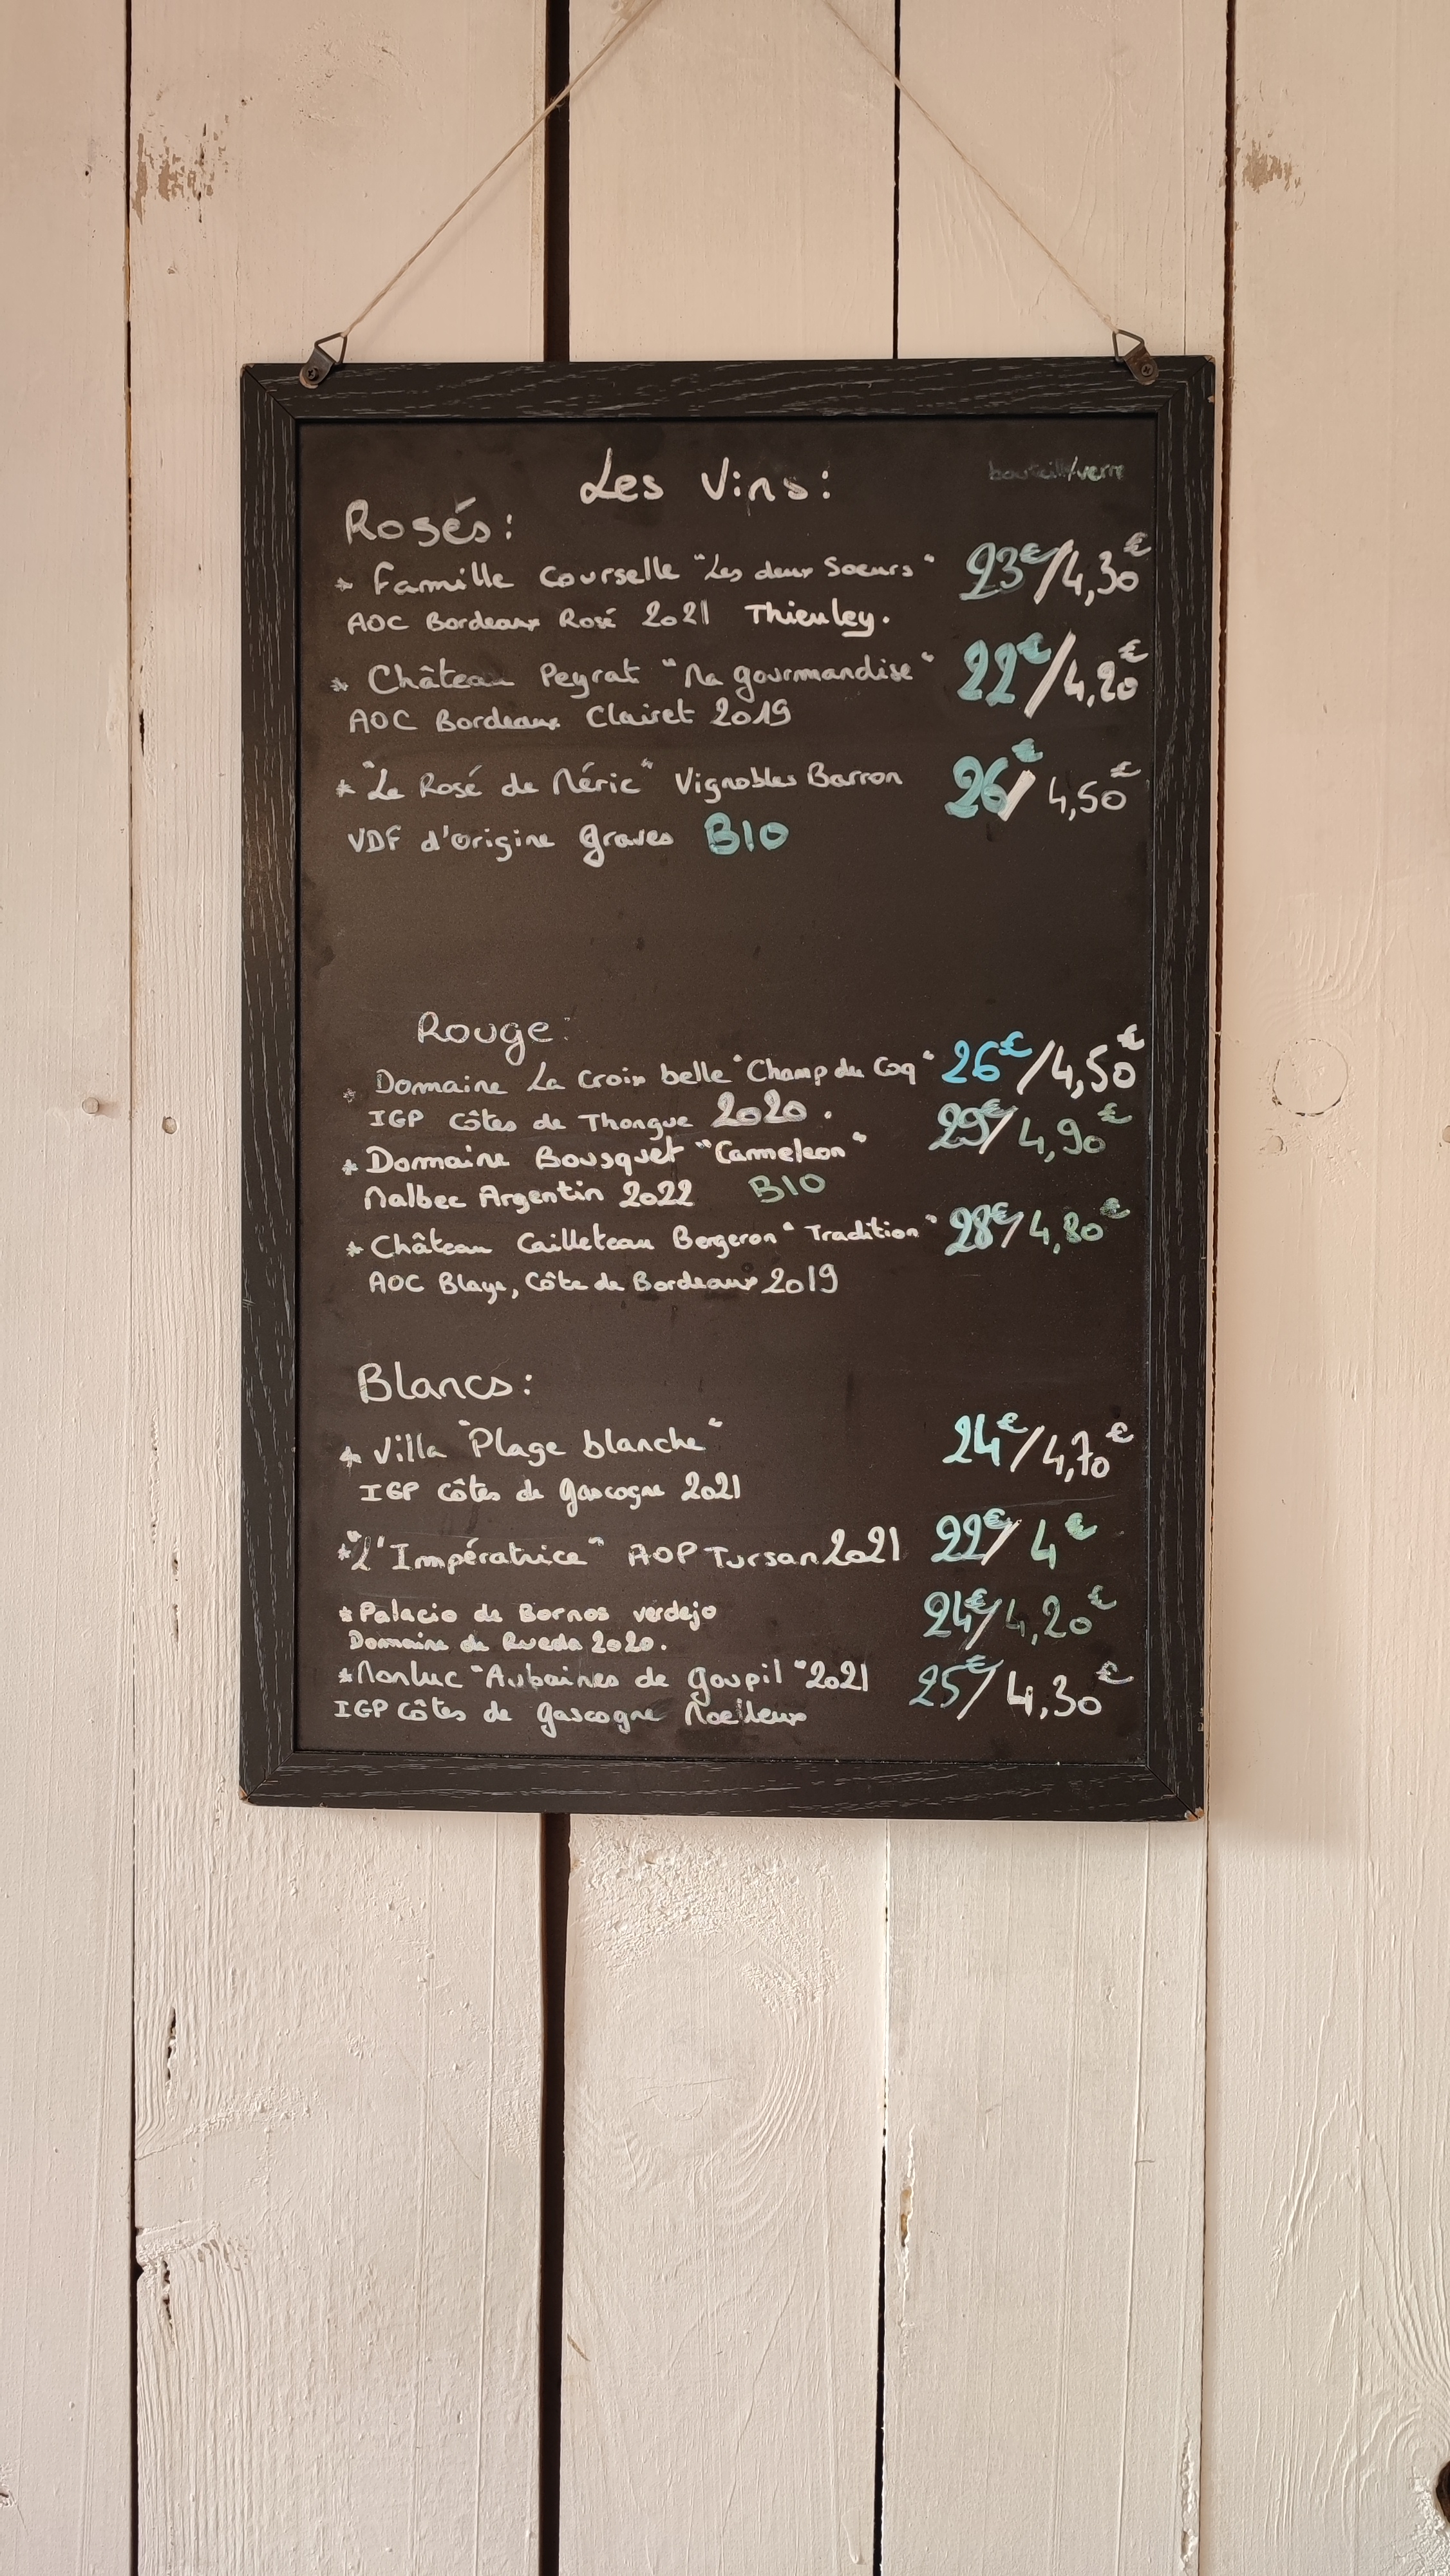 Les Vins:
bouteille/verre
Rosés:
* Famille Courselle "Les deux Soeurs" 23€/4,30€
AOC Bordeaux Rosé 2021 Thieuley.
* Château Peyrat "Ma gourmandise" 22€/4,20€
AOC Bordeaux Clairet 2019
* "Le Rosé de Méric" Vignobles Barron 26€/4,50€
VDF d'origine graves BIO
Rouge:
* Domaine La Croix belle "Champ du Coq" 26€/4,50€
IGP Côtes de Thongue 2020.
* Domaine Bousquet "Cameleon" 29€/4,90€
Malbec Argentin 2022 BIO
* Château Cailleteau Bergeron "Tradition" 28€/4,80€
AOC Blaye, Côte de Bordeaux 2019
Blancs:
* Villa "Plage blanche" 24€/4,70€
IGP Côtes de gascogne 2021
* "L'Impératrice" AOP Tursan 2021 22€/4€
* Palacio de Bornos verdejo 24€/4,20€
Domaine de Rueda 2020.
* Monluc "Aubaines de Goupil" 2021 25€/4,30€
IGP Côtes de gascogne Moelleux